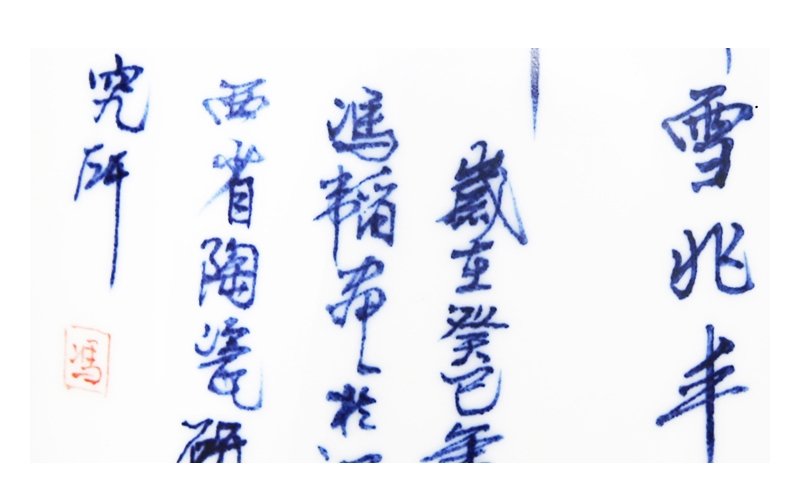 雪兆丰
歲在癸巳年
馮韜於
西省陶瓷研
究所
馮